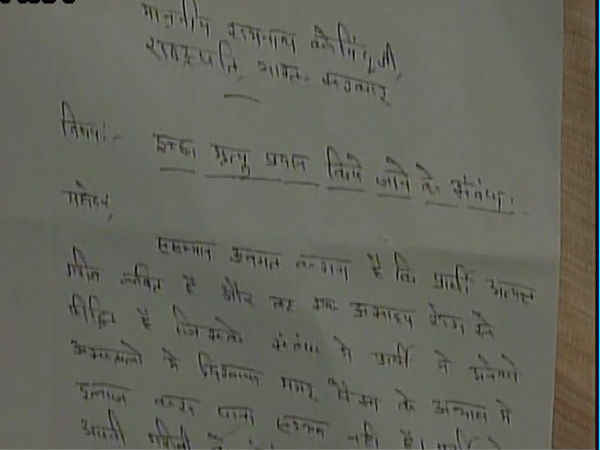 माननीय रामनाथ कोविंद जी,
राष्ट्रपति, भारत सरकार
विषय:- इच्छा मृत्यु प्रदान किये जाने के संबंध।
महोदय,
ससम्मान अवगत कराना है कि प्रार्थी अत्यन्त
गरीब व्यक्ति है और वह एक असाध्य रोग से
पीड़ित है जिसके संबंध में प्रार्थी ने अनेको
अस्पतालो में दिखलाया मगर पैसा के अभाव में
इलाज करा पाना सम्भव नही है।
अपनी गरीबी